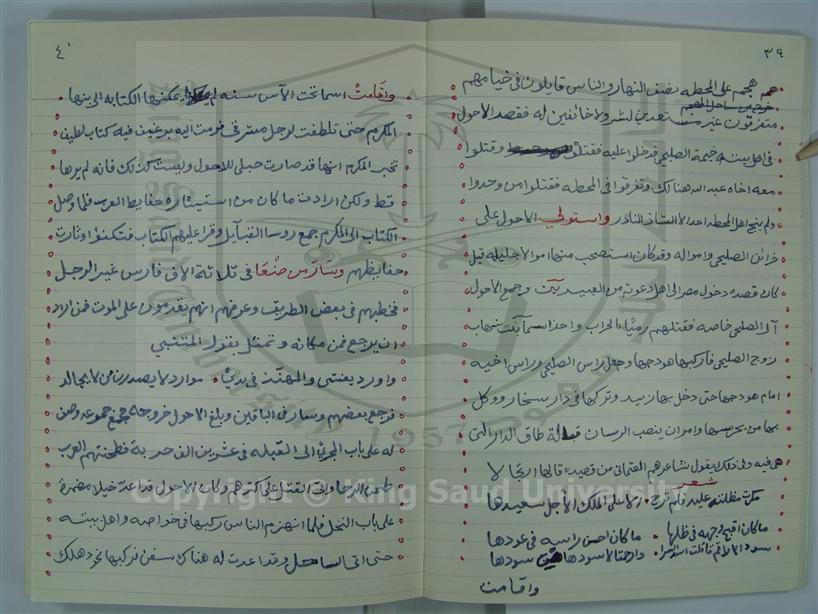 ٣٩
هجم على المحطه نصف النهار والناس قايلون في خيامهم
متفرقون غير مستعدين لشر ولا خائفين له فقصد الاحول
في اهل بيته خيمة الصليحي فدخلوا عليه فقتلوه وقتلوا
معه اخاه عبد الله هنالك وتفرقوا في المحطه فقتلوا من وجدوا
ولم ينج اهل المحطه احد الا الشاذ النادر واستولى الاحول على
خزائن الصليحي وامواله وقد كان استصحب منها اموالا جليله قبل
كان قصده دخول مصر الى اهل دعوته من العبيديين وجمع الاحول
آل الصليحي خاصه فقتلهم رميًا بالحراب واخذ اسما بنت شهاب
زوج الصليحي فاركبها هودجها وجعل راس الصليحي وراس اخيه
امام هودجها حتى دخل بها زبيد وتركها في دار سحار ووكل
بها من يحرسها وامر ان ينصب الرسان قبالة طاق الدار التي
هي فيه وفي ذلك يقول شاعرهم العثماني من قصيده قالها ارتجالا
شعر
مظلته عليه فلم ترح الا على الملك الأجل سعيدها
ما كان اقبح وجهه في ظلها ما كان احسن راسه في عودها
سود الاراقم قاتلت اسد الشرا وارحمتا لأسودها من سودها
واقامت
٤٠
واقامت اسما تحت الأسر سنه لم يمكنها الكتابه الى ابنها
المكرم حتى تلطفت لرجل مسرق فرمت اليه برغيف فيه كتاب لطيف
تخبر المكرم انها قد صارت حبلى للاحول وليست كذلك فانه لم يرها
قط ولكن ارادت ما كان من استيثاره حفايظ العرب فلما وصل
الكتاب الى المكرم جمع روسا القبايل وقرا عليهم الكتاب فتكنفوا وثارت
حفايظهم وسار من صنعا في ثلاثة الاف فارس غير الرجل
فخطبهم في بعض الطريق وعرفهم انهم يقدمون على الموت فمن اراد
ان يرجع فمن مكانه وتمثل بقول المتنبي
واورد بنفسي والمهند في يدي موارد لا يصدرن من لا يجالد
فرجع بعضهم وسار في الباقين وبلغ الاحول خروجه فجمع جموعه وصف
له على باب المجرى الى القبله في عشرين الف حربة فطحنتهم العرب
طحن الرحا وات القتل على اكثرهم وكان الاحول قد اعد خيلا مضمرة
على باب النخل فلما انهزم الناس ركبها في خواصه واهل بيته
حتى اتى الساحل وقد اعدت له هناك سفن فركبها نحو دهلك